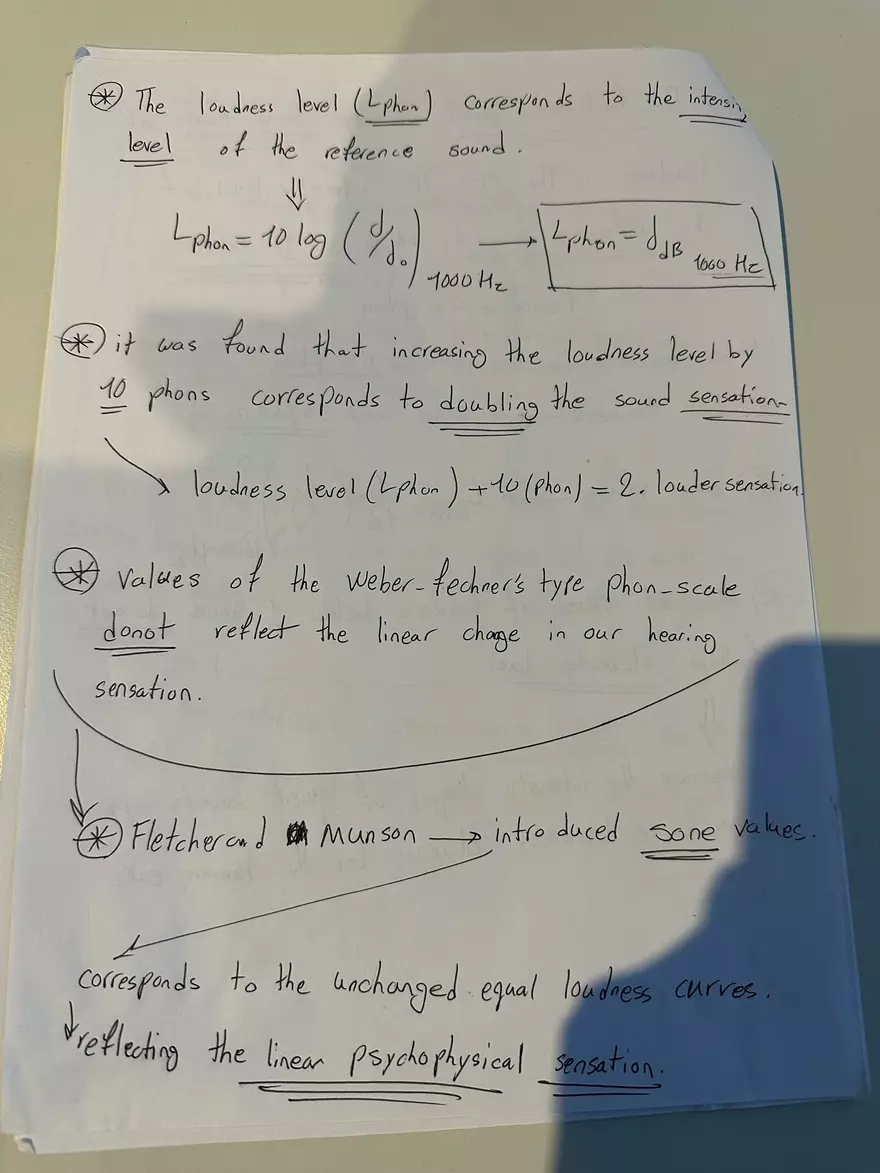 * The loudness level (Lphon) corresponds to the intensity
level of the reference sound.
⇓
Lphon = 10 log (d/d₀) 1000 Hz → Lphon = d dB 1000 Hz
* it was found that increasing the loudness level by
10 phons corresponds to doubling the sound sensation
loudness level (Lphon) + 10 (phon) = 2. louder sensation.
* Values of the weber-fechner's type phon-scale
donot reflect the linear chage in our hearing
sensation.
* Fletcher and Munson → introduced sone values.
corresponds to the unchanged equal loudness curves.
↓ reflecting the linear psychophysical sensation.